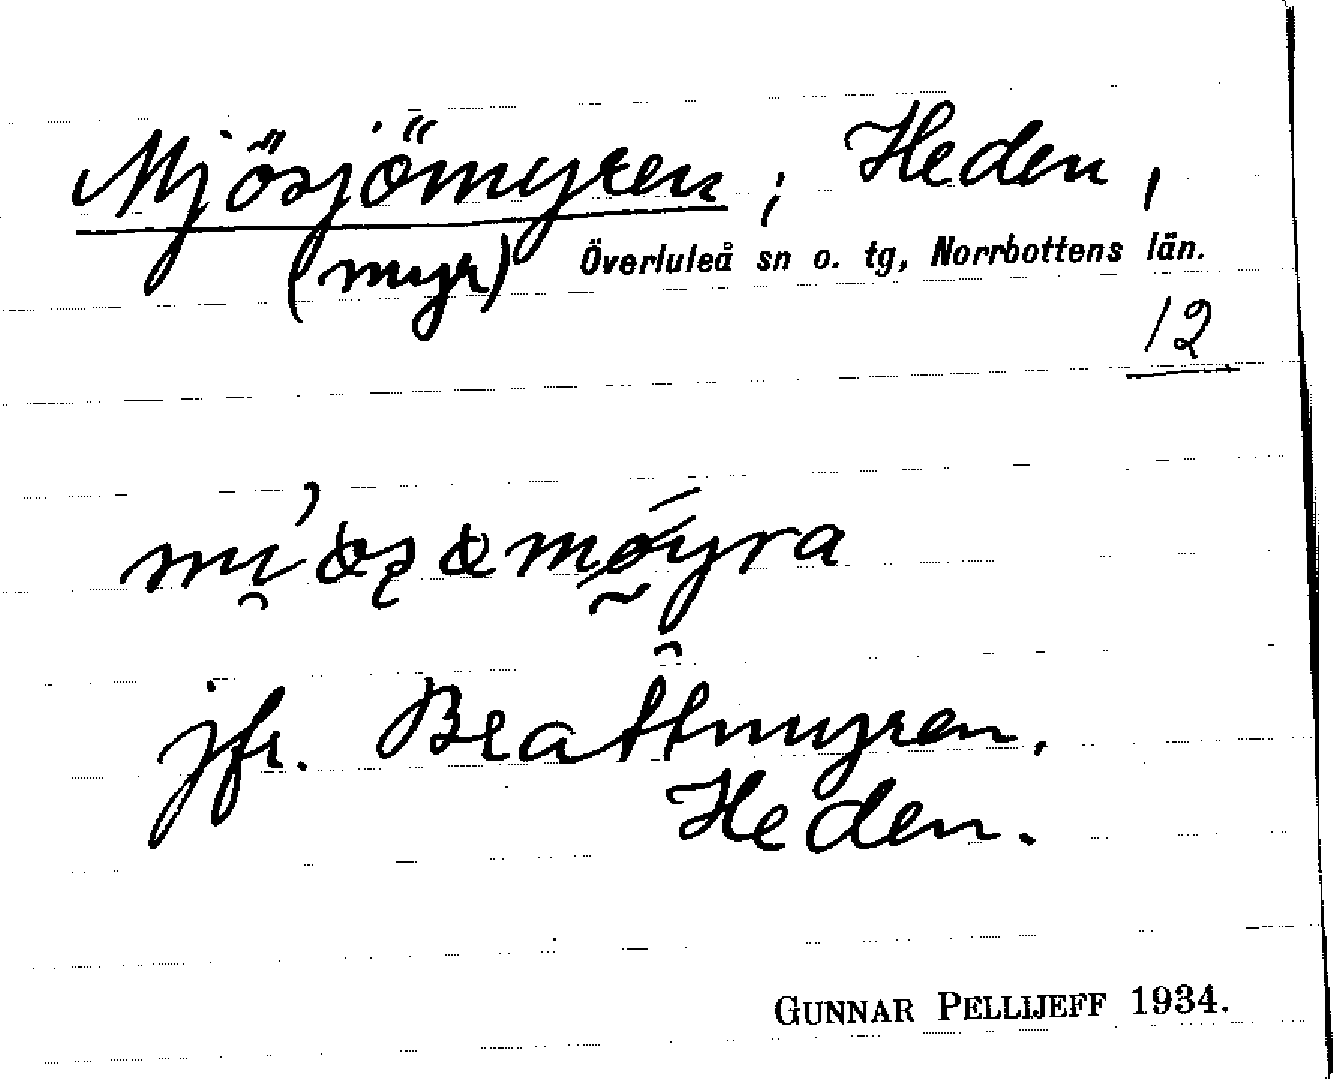 Mjösjömyren, Heden,
(myr) Överluleå sn o. tg, Norrbottens län.
12
jfr. Brattmyren,
Heden.
GUNNAR PELLIJEFF 1934.